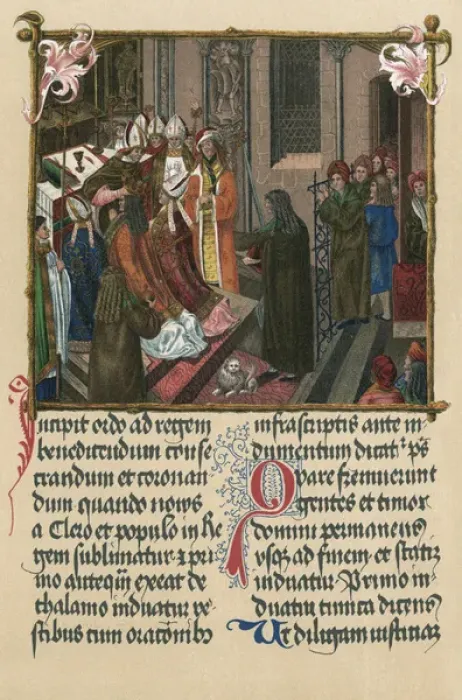 Incipit ordo ad regem
benedicendum conse
crandum et coronan
dum quando nouus
a Clero et populo in Re
gem sublimatur ⁊ pri
mo anteqm̄ exeat de
thalamo induatur ve
stibus cum
infrascriptis ante in
dumentum dicatʳ ps̄
Quare fremuerunt
gentes et timor
domini permanens
vsqꝫ ad finem et statiꝫ
induatur Primo in
duatur tunica dicens
Vt diligam iusticiaꝫ